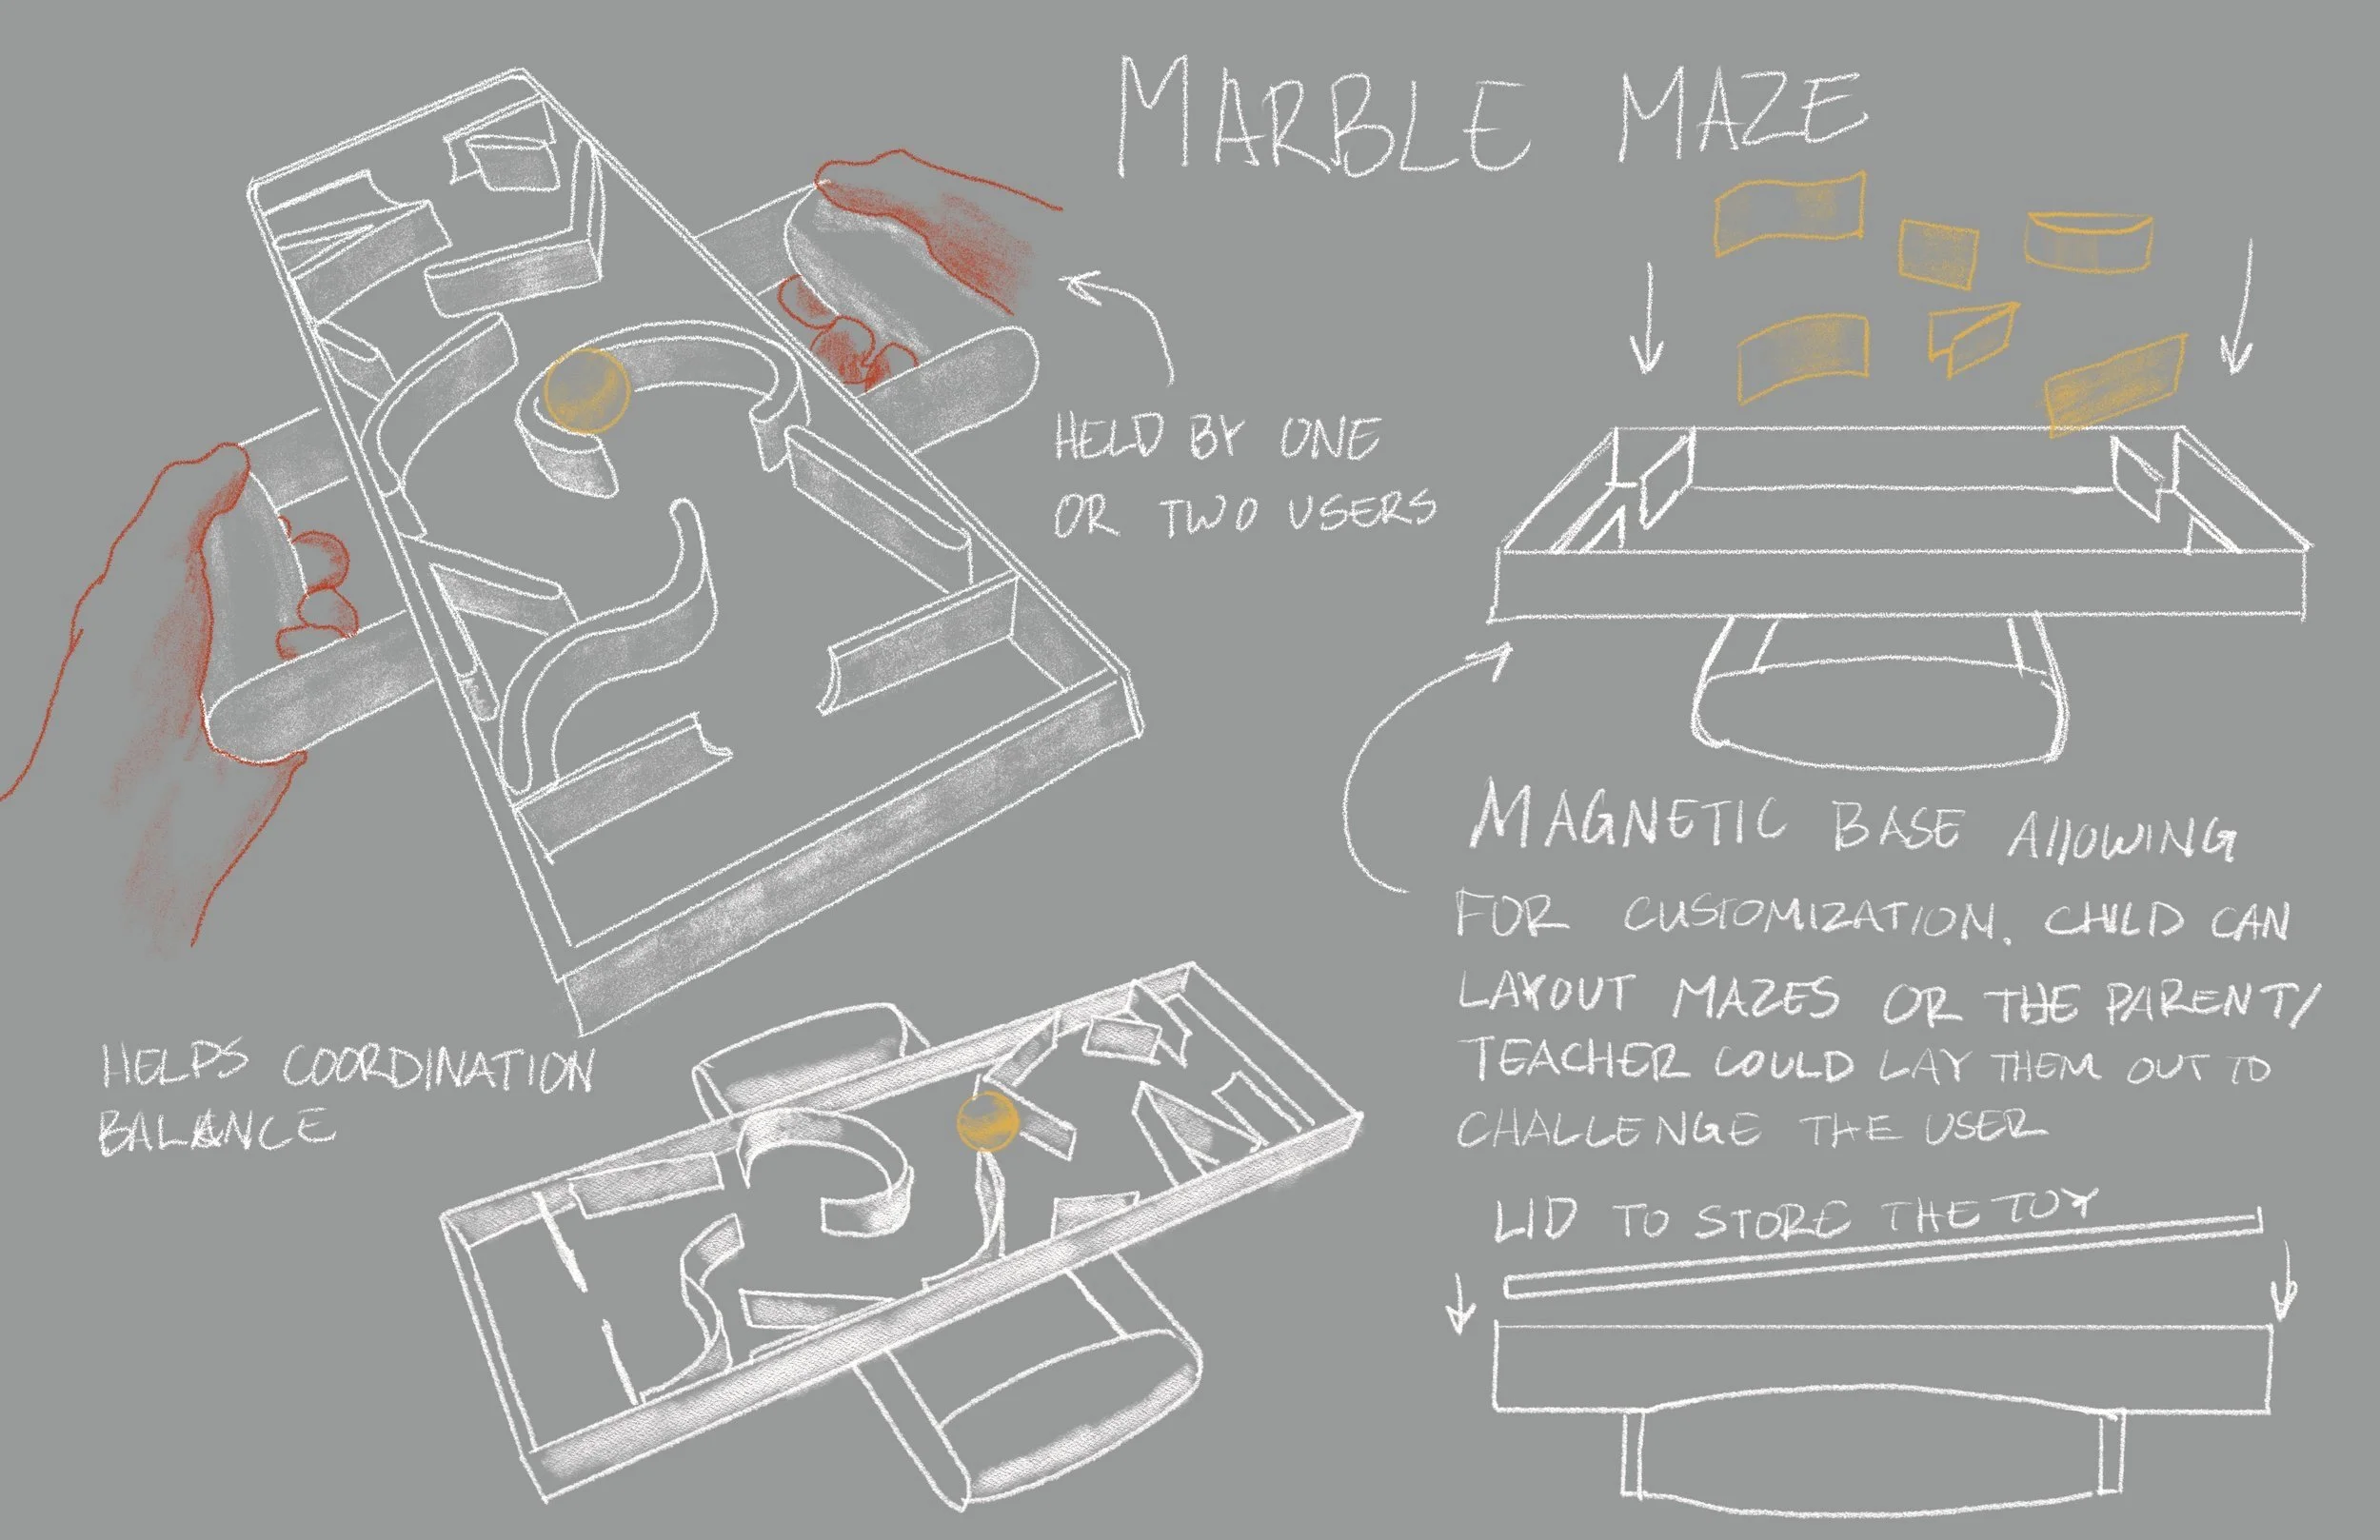 MARBLE MAZE
HELD BY ONE
OR TWO USERS
MAGNETIC BASE AllOWING
FOR CUSTOMIZATION. CHILD CAN
LAYOUT MAZES OR THE PARENT/
TEACHER COULD LAY THEM OUT TO
CHALLENGE THE USER
HELPS COORDINATION
BALANCE
LID TO STORE THE TOY